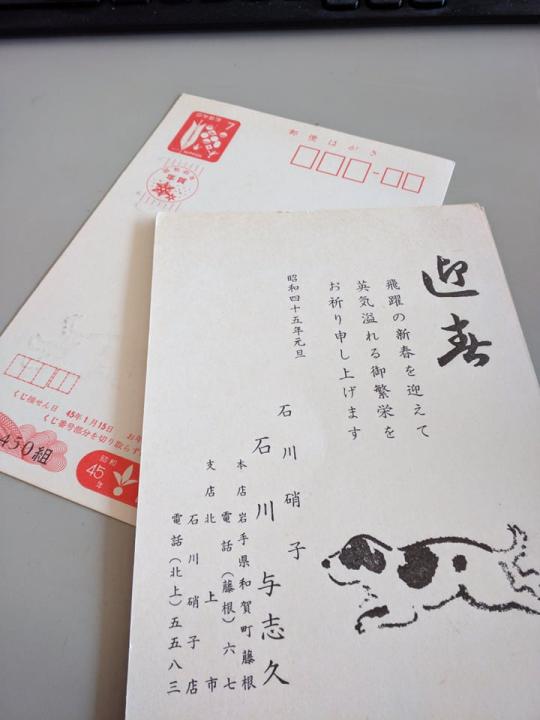 迎春
飛躍の新春を迎えて
英気溢れる御繁栄を
お祈り申し上げます
昭和四十五年元旦
石川硝子
石川与志久
本店 岩手県和賀町藤根
電話(藤根)六七
支店 北上市
石川硝子店
電話(北上)五五八三
郵便はがき
7
年賀
くじ抽せん日 45年1月15日 お年
くじ番号部分を切り取らず
450組
昭和
45
年